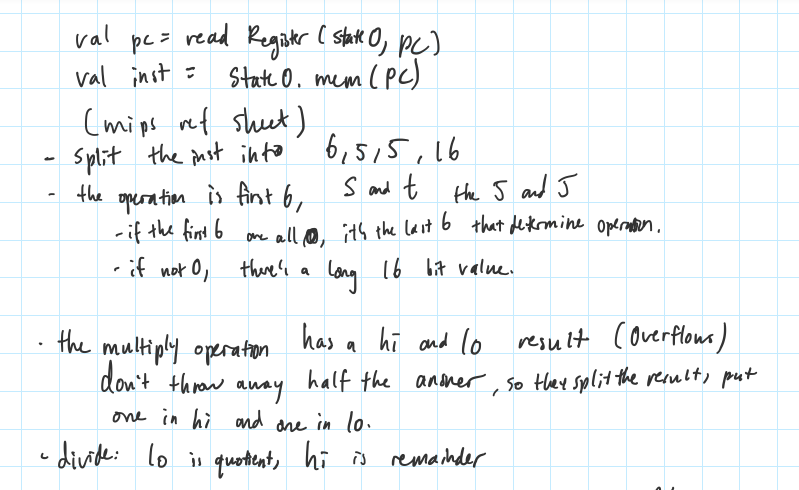 val pc = read Register (state0, pc)
val inst = State0. mem (PC)
(mips ref sheet)
- split the inst into 6, 5, 5, 16
- the operation is first 6, s and t the 5 and 5
- if the first 6 are all 0, it's the last 6 that determine operation.
- if not 0, there's a long 16 bit value.
· the multiply operation has a hi and lo result (overflows)
don't throw away half the answer, so they split the result, put
one in hi and one in lo.
· divide: lo is quotient, hi is remainder